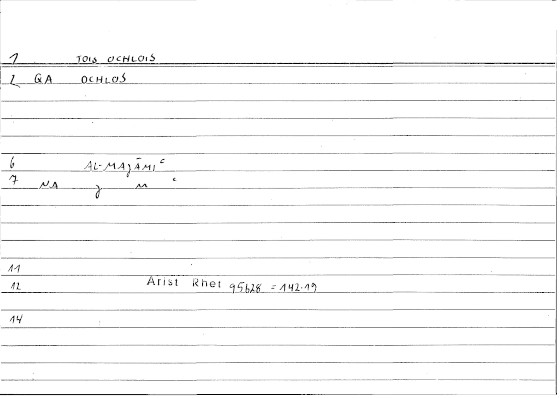 1 TOIS OCHLOIS
2 QA OCHLOS
6 AL-MAJĀMIᶜ
7 NA J M ᶜ
11
12 Arist Rhet 95b28 = 142.19
14